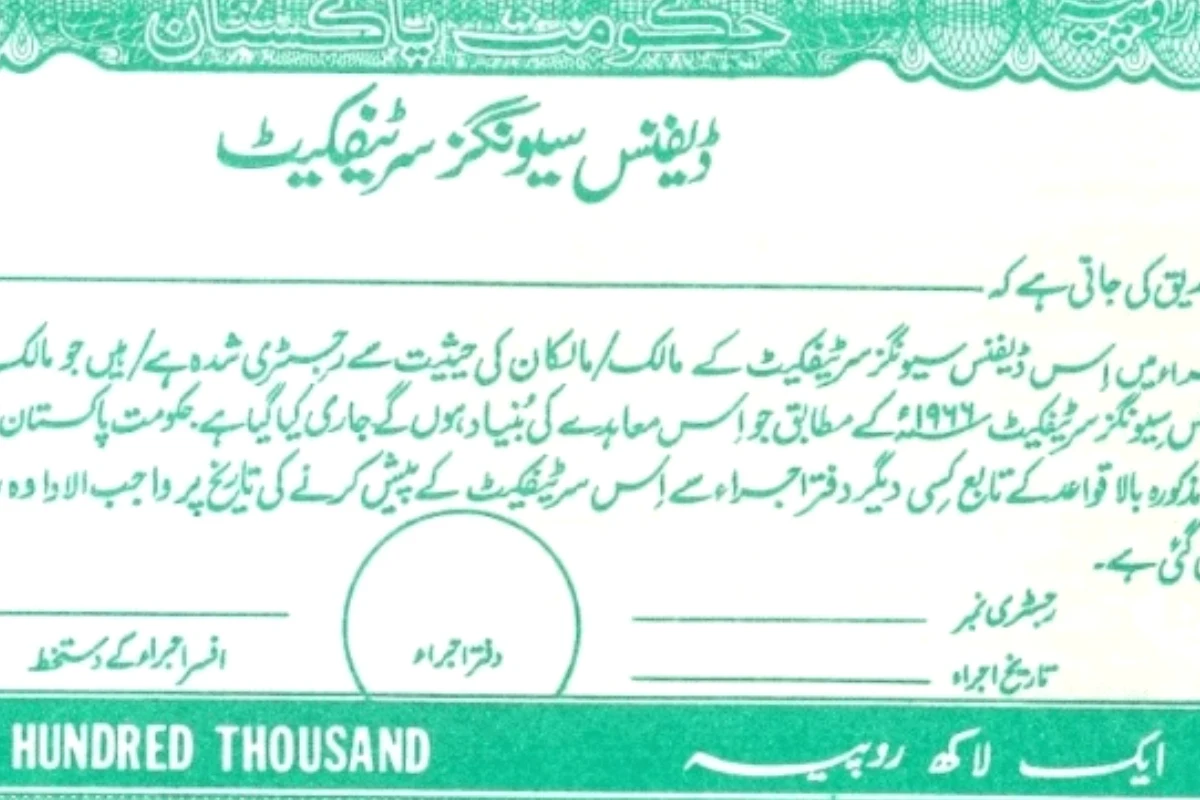 روپیہ
حکومت پاکستان
ڈیفنس سیونگز سرٹیفکیٹ
کی جاتی ہے کہ
میں اِس ڈیفنس سیونگز سرٹیفکیٹ کے مالک/مالکان کی حیثیت سے رجسٹری شدہ ہے/ہیں جو مالک
سیونگز سرٹیفکیٹ ۱۹۶۶ء کے مطابق جو اِس معاہدے کی بُنیاد ہوں گے جاری کیا گیا ہے۔ حکومت پاکستان
بالا قواعد کے تابع کِسی دیگر دفتر اجراء سے اِس سرٹیفکیٹ کے پیش کرنے کی تاریخ پر واجب الادا وہ
گئی ہے۔
رجسٹری نمبر
تاریخ اجراء
دفتر اجراء
افسر اجراء کے دستخط
HUNDRED THOUSAND ایک لاکھ روپیہ